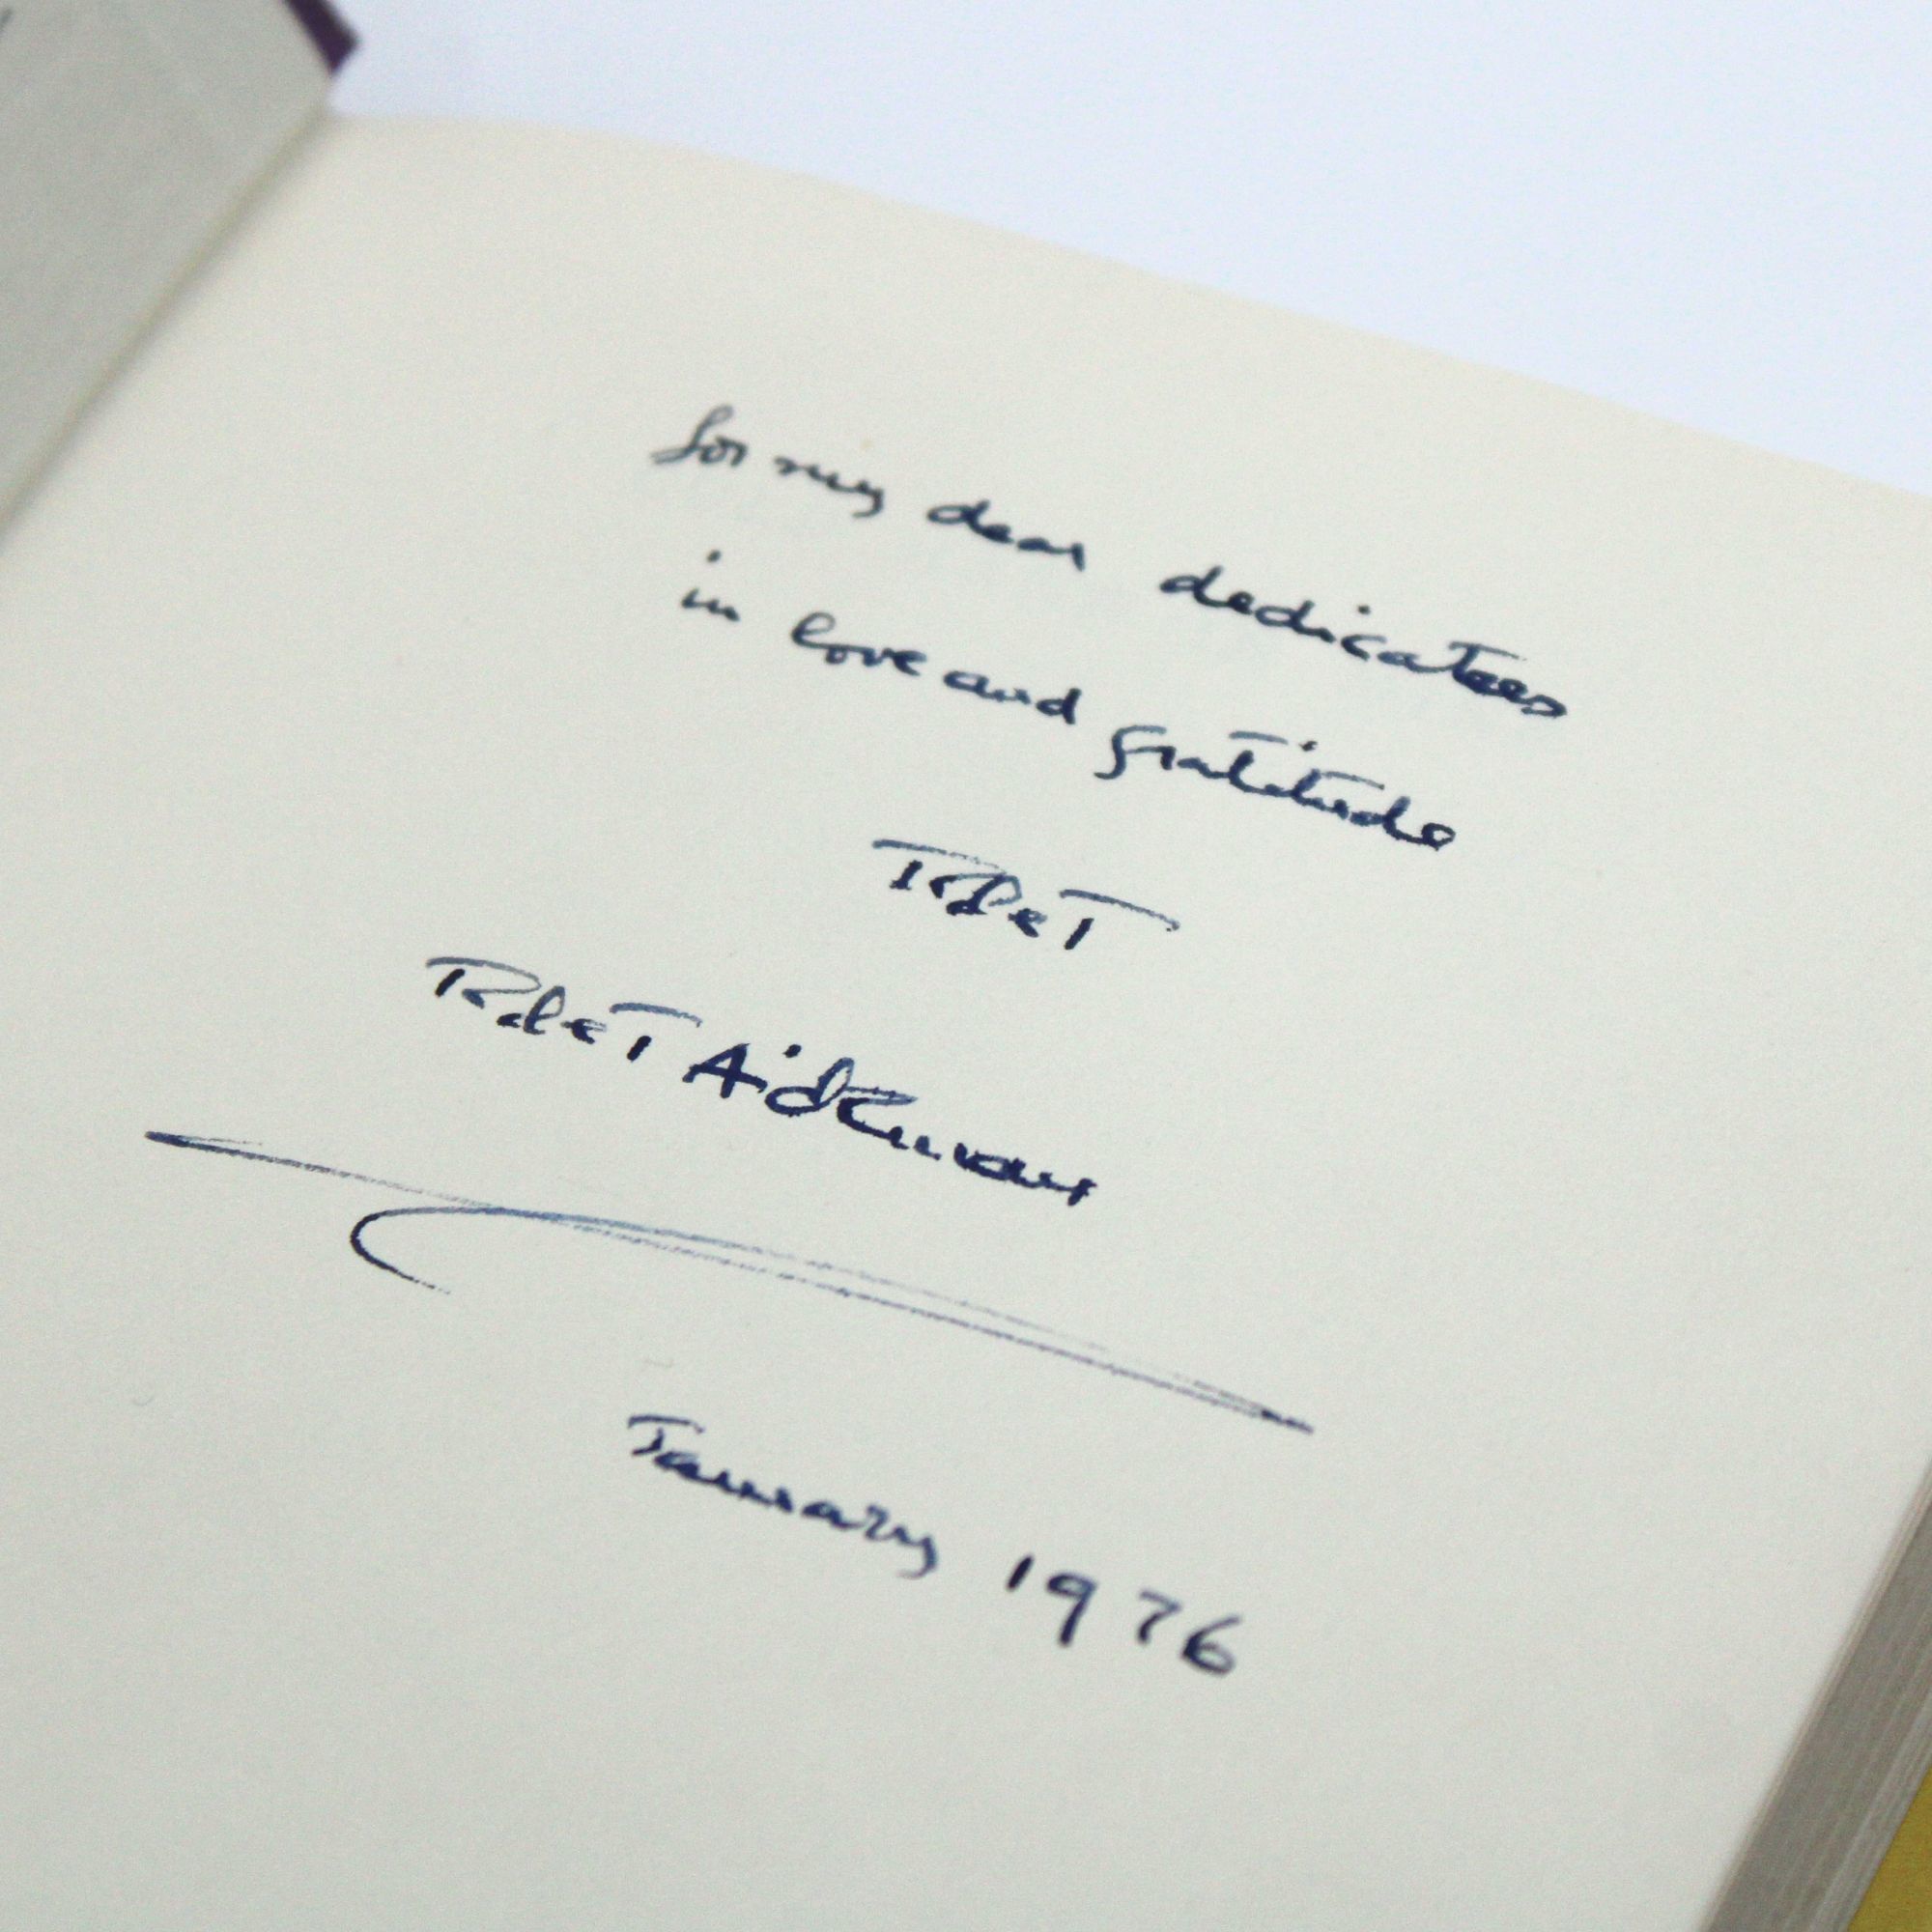 for my dear dedicatees
in love and gratitude
Robert
Robert Aickman
January 1976